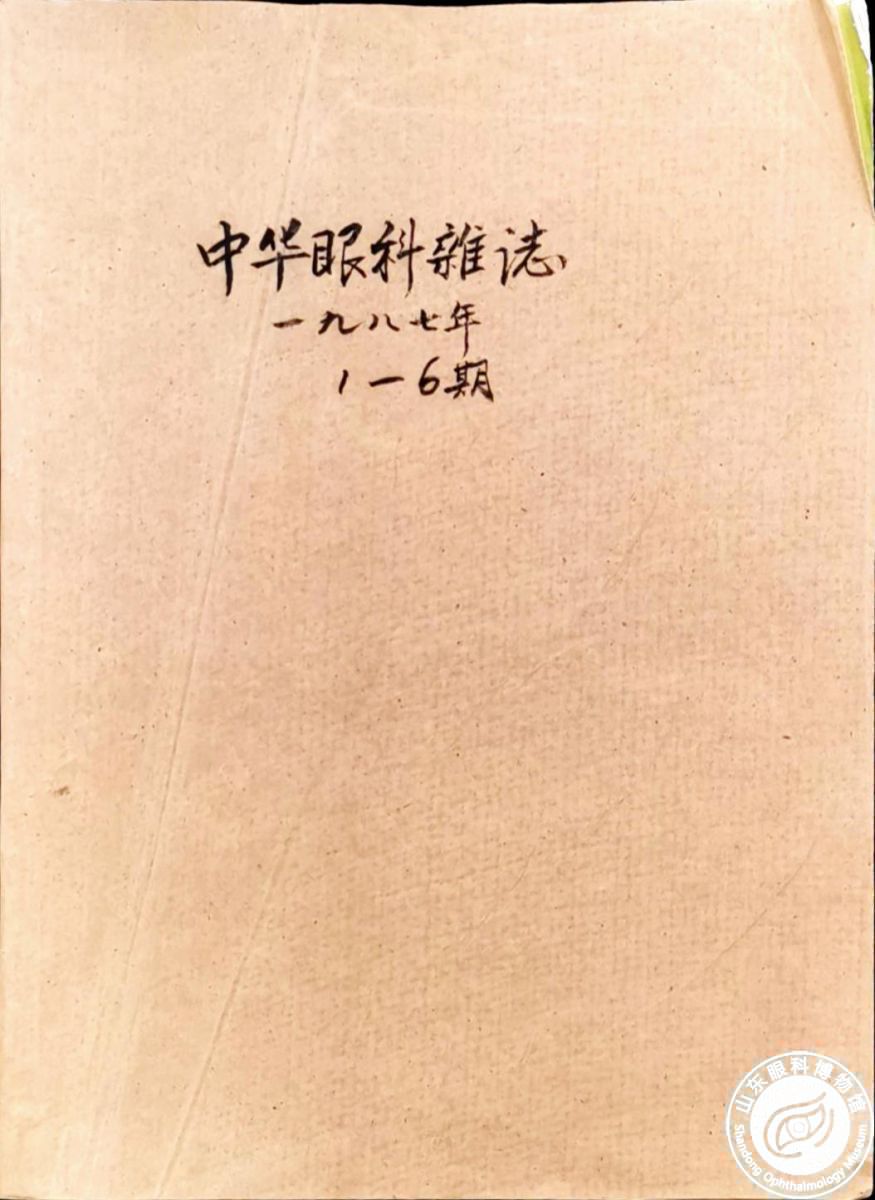 中华眼科雜誌
一九八七年
1一6期
山东眼科博物馆
Shandong Ophthalmology Museum